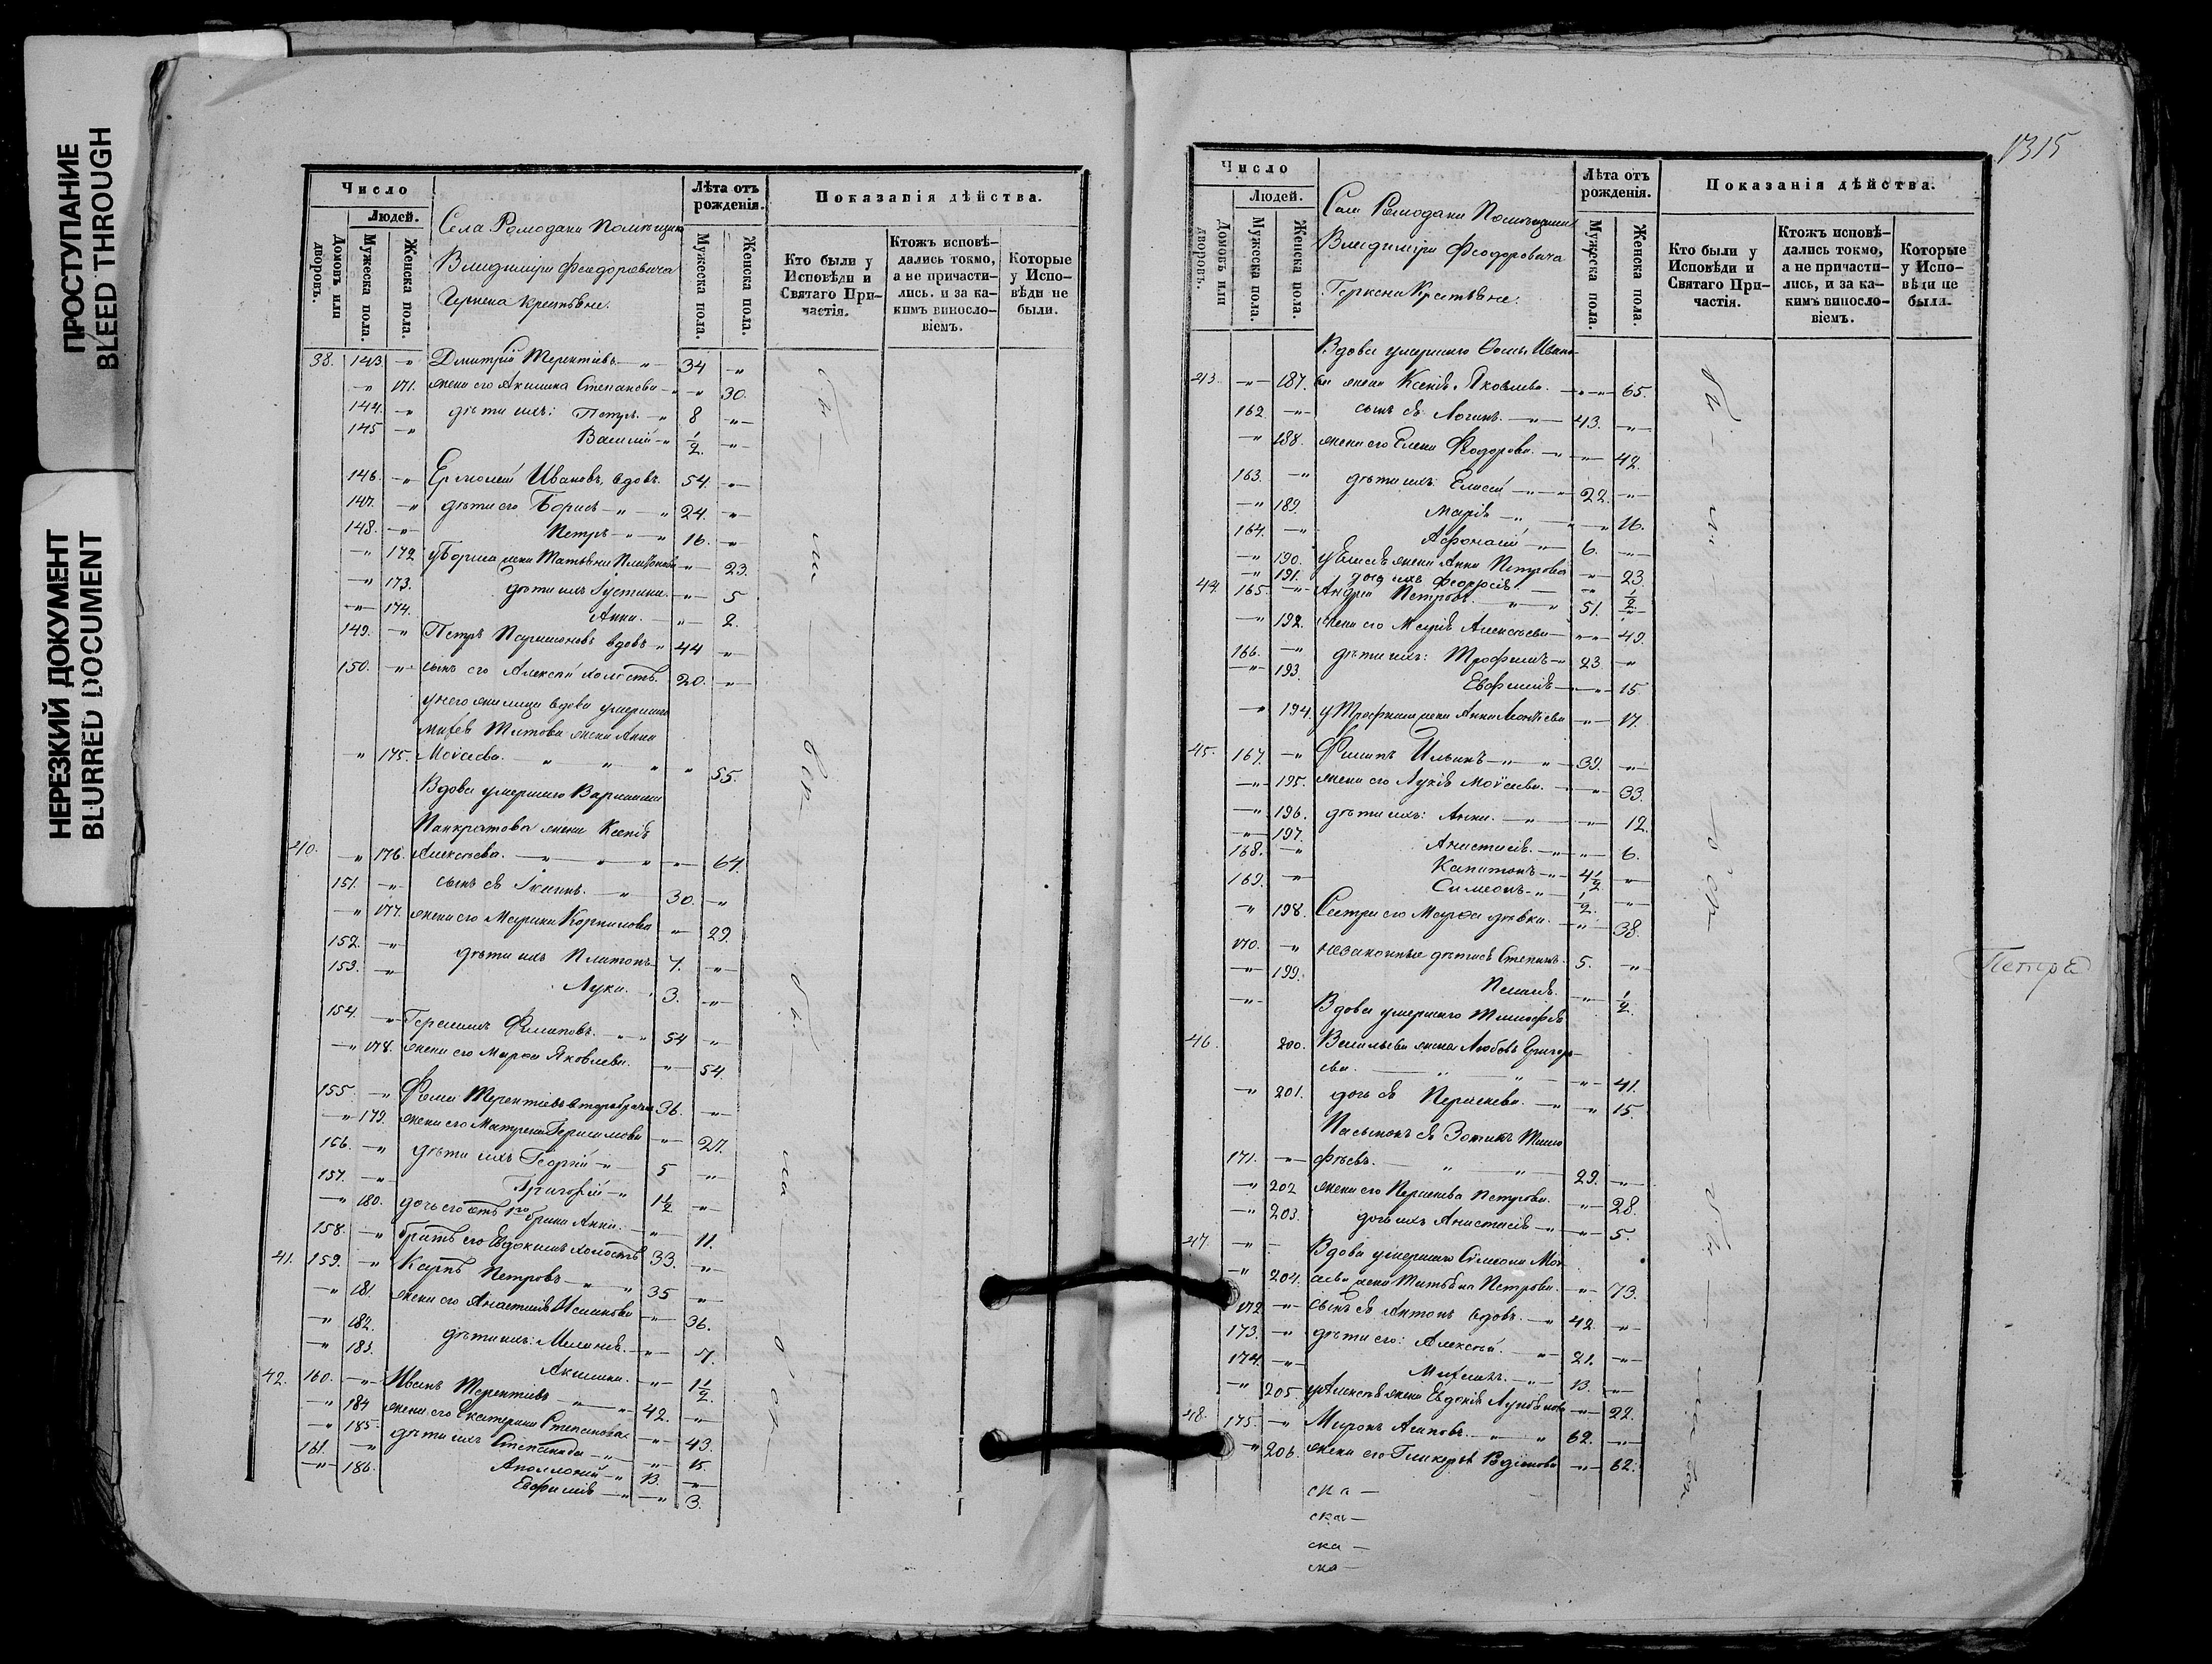 ПРОСТУПАНИЕ
BLEED THROUGH
НЕРЕЗКИЙ ДОКУМЕНТ
BLURRED DOCUMENT
Число
Людей.
Домовъ или дворовъ.
Мужеска пола.
Женска пола.
Села Ромодана Помѣщика
Владиміра Феодоровича
крестьяне.
Лѣта отъ рожденія.
Мужеска пола.
Женска пола.
Показанія дѣйства.
Кто были у Исповѣди и Святаго Причастія.
Ктожъ исповѣдались токмо, а не причастились, и за какимъ винословіемъ.
Которые у Исповѣди не были.
38. 143. -"- Дмитрій Терентіевъ -"- 34 -"-
-"- 171. жена его Акилина Степанова -"- 30.
144. -"- дѣти ихъ: Петръ -"- 8 -"-
145 -"- Василій -"- 1/2. -"-
146. -"- Ермолай Ивановъ, вдовъ. 54. -"-
147. -"- дѣти его Борисъ -"- 24. -"-
148. -"- Петръ -"- 16. -"-
-"- 172 у Бориса жена Татьяна -"- 23.
-"- 173. дѣти ихъ Іустина. -"- 5
-"- 174. Анна. -"- 2.
149. -"- Петръ вдовъ -"- 44 -"-
150. -"- сынъ его Алексѣй холостъ. 20. -"-
у него жилица вдова умершаго
Титова жена Анна
-"- 175. Моѵсеева. -"- 55.
Вдова умершаго
Панкратова жена Ксенія
40. -"- 176. Алексѣева. -"- 64.
151. -"- сынъ ея -"- 30. -"-
-"- 177. жена его Марина Корнилова -"- 29.
152. -"- дѣти ихъ Платонъ 7. -"-
153. -"- Лука. 3. -"-
154. -"- Герасимъ Филиповъ. -"- 54 -"-
-"- 178. жена его Марѳа Яковлева. -"- 54.
155. -"- Фома Терентіевъ 36. -"-
-"- 179. жена его Матрена Герасимова -"- 27.
156. -"- дѣти ихъ Георгій -"- 5 -"-
157. -"- Григорій -"- 1 1/2 -"-
-"- 180. дочь его отъ 1го брака Анна. -"- 11.
158. -"- братъ его Евдокимъ холостъ 33. -"-
41. 159. -"- Карпъ Петровъ -"- 35 -"-
-"- 181. жена его Анастасія -"- 36.
-"- 182. дѣти ихъ: Меланія. -"- 7.
-"- 183. Акилина. -"- 1 1/2.
42. 160. -"- Иванъ Терентіевъ -"- 42. -"-
-"- 184 жена его Екатерина Степанова -"- 43.
-"- 185. дѣти ихъ Степанида -"- 15.
161. -"- Аполлоній -"- 13. -"-
-"- 186. Евфимія -"- 3.
1315
Число
Людей.
Домовъ или дворовъ.
Мужеска пола.
Женска пола.
Села Ромодана Помѣщика
Владиміра Феодоровича
крестьяне.
Лѣта отъ рожденія.
Мужеска пола.
Женска пола.
Показанія дѣйства.
Кто были у Исповѣди и Святаго Причастія.
Ктожъ исповѣдались токмо, а не причастились, и за какимъ винословіемъ.
Которые у Исповѣди не были.
Вдова умершаго Ѳомы Ивано-
43. -"- 187. ва жена Ксенія Яковлева. -"- 65.
162 -"- сынъ ея Логинъ. -"- 43. -"-
-"- 188. жена его Елена Феодорова. -"- 42.
163. -"- дѣти ихъ: Елисей -"- 22. -"-
-"- 189. Марія -"- 16.
164. -"- Афонасій -"- 6. -"-
-"- 190. у Елисея жена Анна Петрова -"- 23.
-"- 191. дочь ихъ Феодосія. -"- 1/2
44. 165. -"- Андрей Петровъ. -"- 51. -"-
-"- 192. жена его Марія Алексѣева -"- 49.
166. -"- дѣти ихъ: Трофимъ -"- 23. -"-
-"- 193. Евфимія -"- 15.
-"- 194. у Трофима жена Анна -"- 17.
45. 167. -"- Филипъ Ильинъ -"- 39. -"-
-"- 195. жена его Лукія Моѵсеева. -"- 33.
-"- 196. дѣти ихъ: Анна. -"- 12.
-"- 197. Анастасія. -"- 6.
168. -"- Капитонъ -"- 4 1/2 -"-
169. -"- Симеонъ -"- 1/2. -"-
-"- 198. Сестра его Марѳа дѣвка. -"- 38.
170. -"- незаконные дѣти ея Степанъ. 5. -"-
-"- 199. Пелагія. -"- 1/2.
-"- Вдова умершаго Тимофея
46. 200. Васильева жена Любовь Григорь-
ева. -"- 41.
-"- 201. дочь ея Параскева. -"- 15.
Пасынокъ ея Зотикъ Тимо-
171. -"- фѣевъ. -"- 29. -"-
-"- 202 жена его Параскева Петрова. -"- 28.
-"- 203. дочь ихъ Анастасія -"- 5.
47. -"- Вдова умершаго Симеона Моѵ-
-"- 204. сеева жена Татьяна Петрова. -"- 73.
172. -"- сынъ ея Антонъ вдовъ. -"- 42. -"-
173. -"- дѣти его: Алексѣй. -"- 21. -"-
174. -"- Михаилъ. -"- 13. -"-
-"- 205. у Алексѣя жена Евдокія -"- 22.
48. 175. -"- Миронъ Агаповъ. -"- 62. -"-
-"- 206. жена его Гликерія Родіонова -"- 62.
ска -
ска -
ска -
ска -